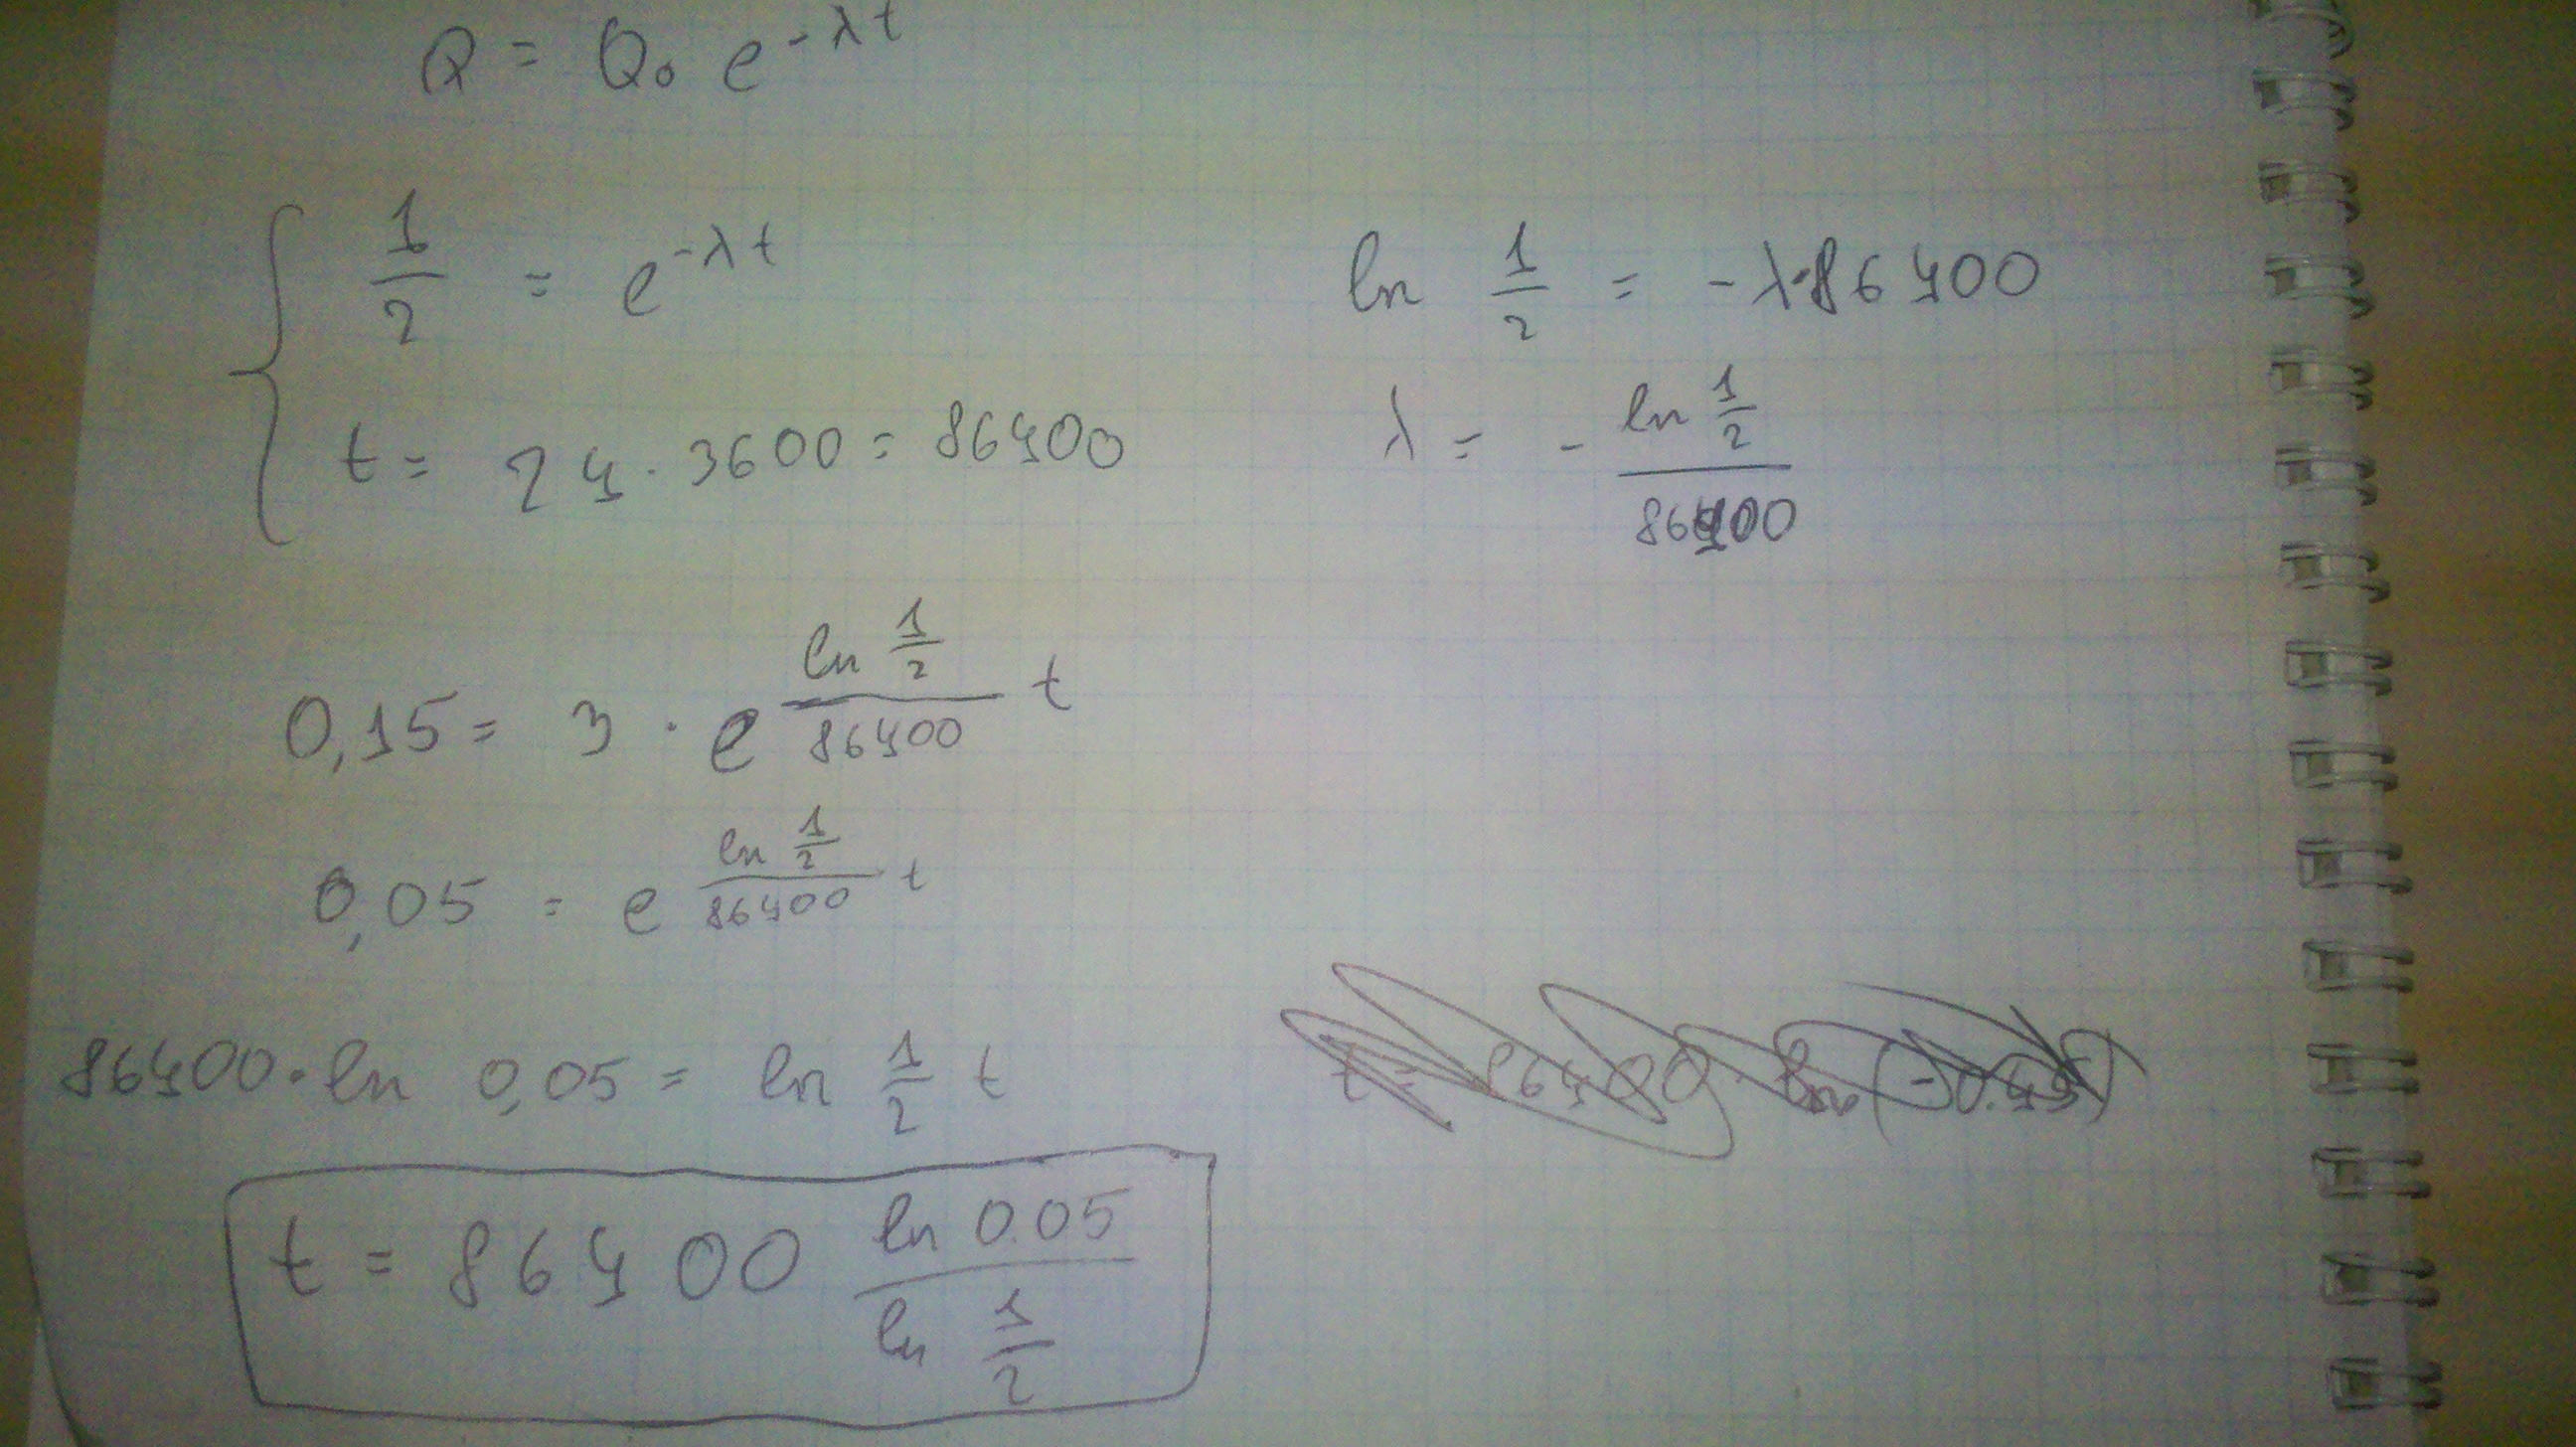 Q = Q₀ e^{-λt}
1/2 = e^{-λt}
t = 24 · 3600 = 86400
ln 1/2 = -λ·86400
λ = - (ln 1/2)/86400
0,15 = 3 · e^{(ln 1/2)/86400 t}
0,05 = e^{(ln 1/2)/86400 t}
86400 · ln 0,05 = ln 1/2 t
t = 86400 (ln 0.05)/(ln 1/2)